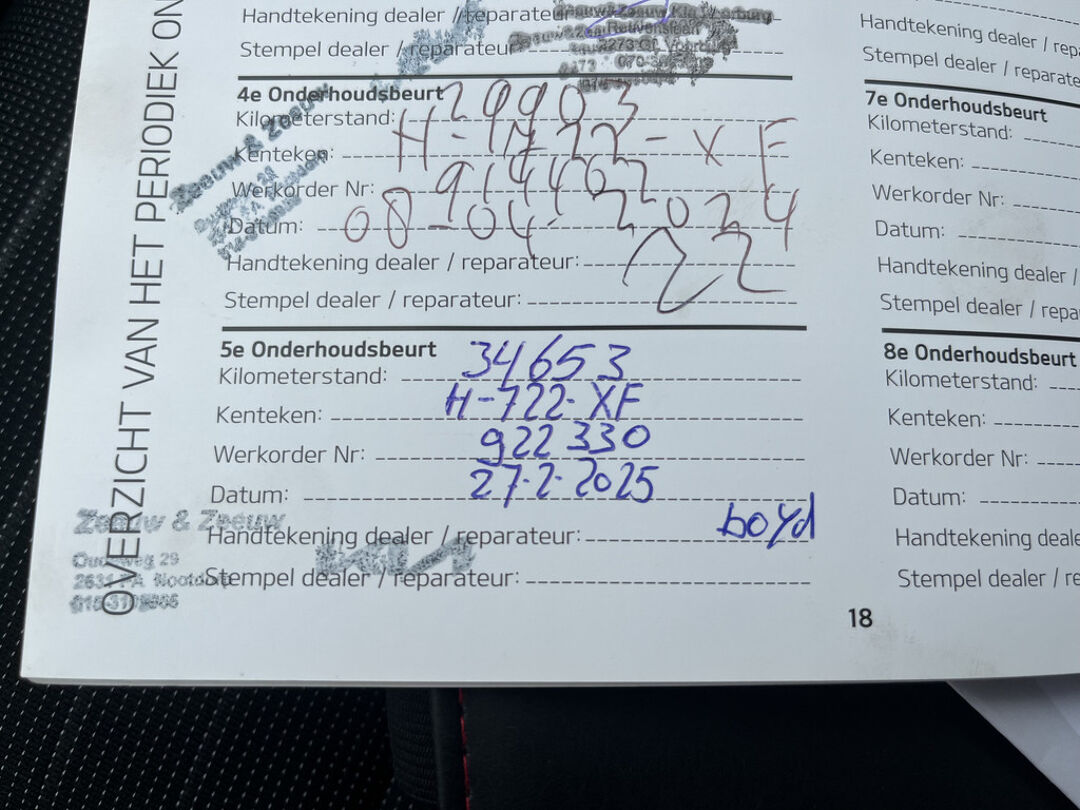 OVERZICHT VAN HET PERIODIEK ON
Handtekening dealer / reparateur
Stempel dealer / reparateur:
4e Onderhoudsbeurt
Kilometerstand: 29903
Kenteken: H-722-XF
Werkorder Nr: 914402
Datum: 08-04-2024
Handtekening dealer / reparateur:
Stempel dealer / reparateur:
Zeeuw & Zeeuw
5e Onderhoudsbeurt
Kilometerstand: 34653
Kenteken: H-722-XF
Werkorder Nr: 922330
Datum: 27-2-2025
Handtekening dealer / reparateur: boyd
Stempel dealer / reparateur:
Zeeuw & Zeeuw
29
18
Handtekening dealer / rep
Stempel dealer / reparate
7e Onderhoudsbeurt
Kilometerstand:
Kenteken:
Werkorder Nr:
Datum:
Handtekening dealer /
Stempel dealer / repa
8e Onderhoudsbeurt
Kilometerstand:
Kenteken:
Werkorder Nr:
Datum:
Handtekening deale
Stempel dealer / re